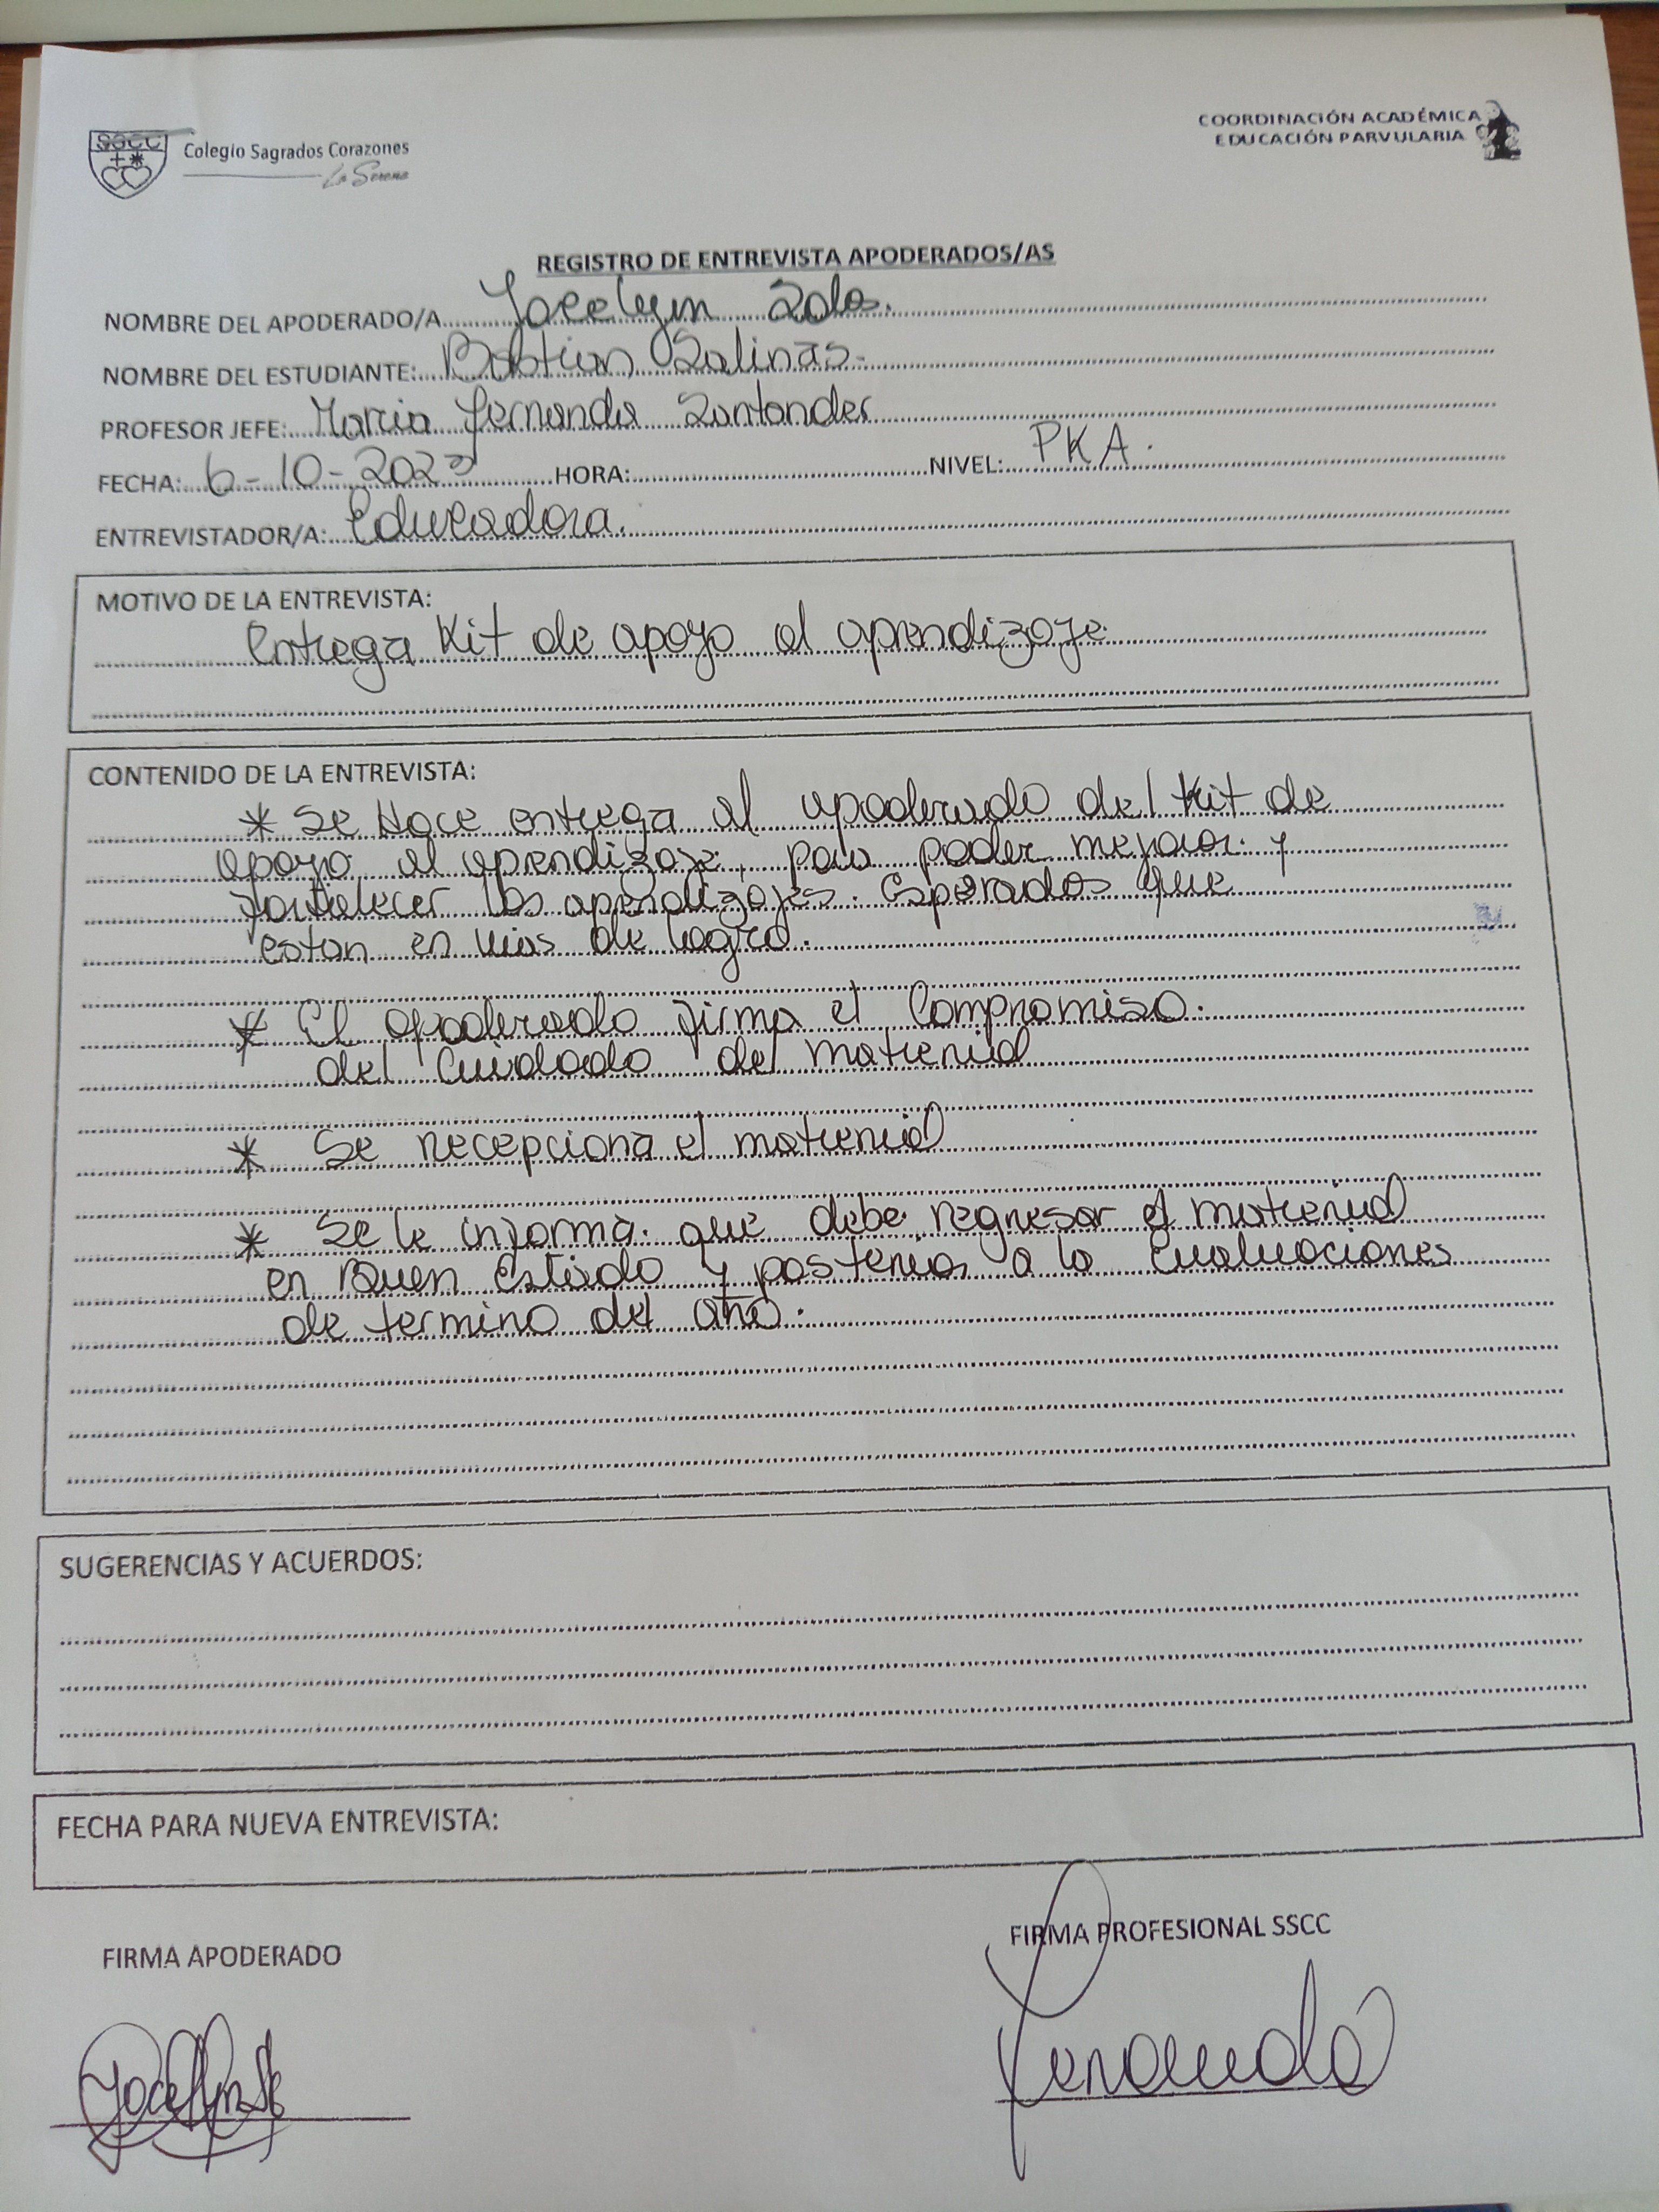 SSCC
Colegio Sagrados Corazones
La Serena
COORDINACIÓN ACADÉMICA
EDUCACIÓN PARVULARIA
REGISTRO DE ENTREVISTA APODERADOS/AS
NOMBRE DEL APODERADO/A Jocelyn
NOMBRE DEL ESTUDIANTE: Bastian Salinas.
PROFESOR JEFE: Maria Fernanda Santander
FECHA: 6-10-2023 HORA: NIVEL: PKA.
ENTREVISTADOR/A: Educadora.
MOTIVO DE LA ENTREVISTA:
Entrega Kit de apoyo al aprendizaje
CONTENIDO DE LA ENTREVISTA:
* Se Hace entrega al apoderado del Kit de
apoyo al aprendizaje, para poder mejorar y
fortalecer los aprendizajes esperados que
estan en vias de logro.
* El apoderado firma el Compromiso
del Cuidado del material
* Se recepciona el material
* Se le informa que debe regresar el material
en Buen estado y posterior a la Evaluaciones
de termino del año.
SUGERENCIAS Y ACUERDOS:
FECHA PARA NUEVA ENTREVISTA:
FIRMA APODERADO
FIRMA PROFESIONAL SSCC
Fernanda